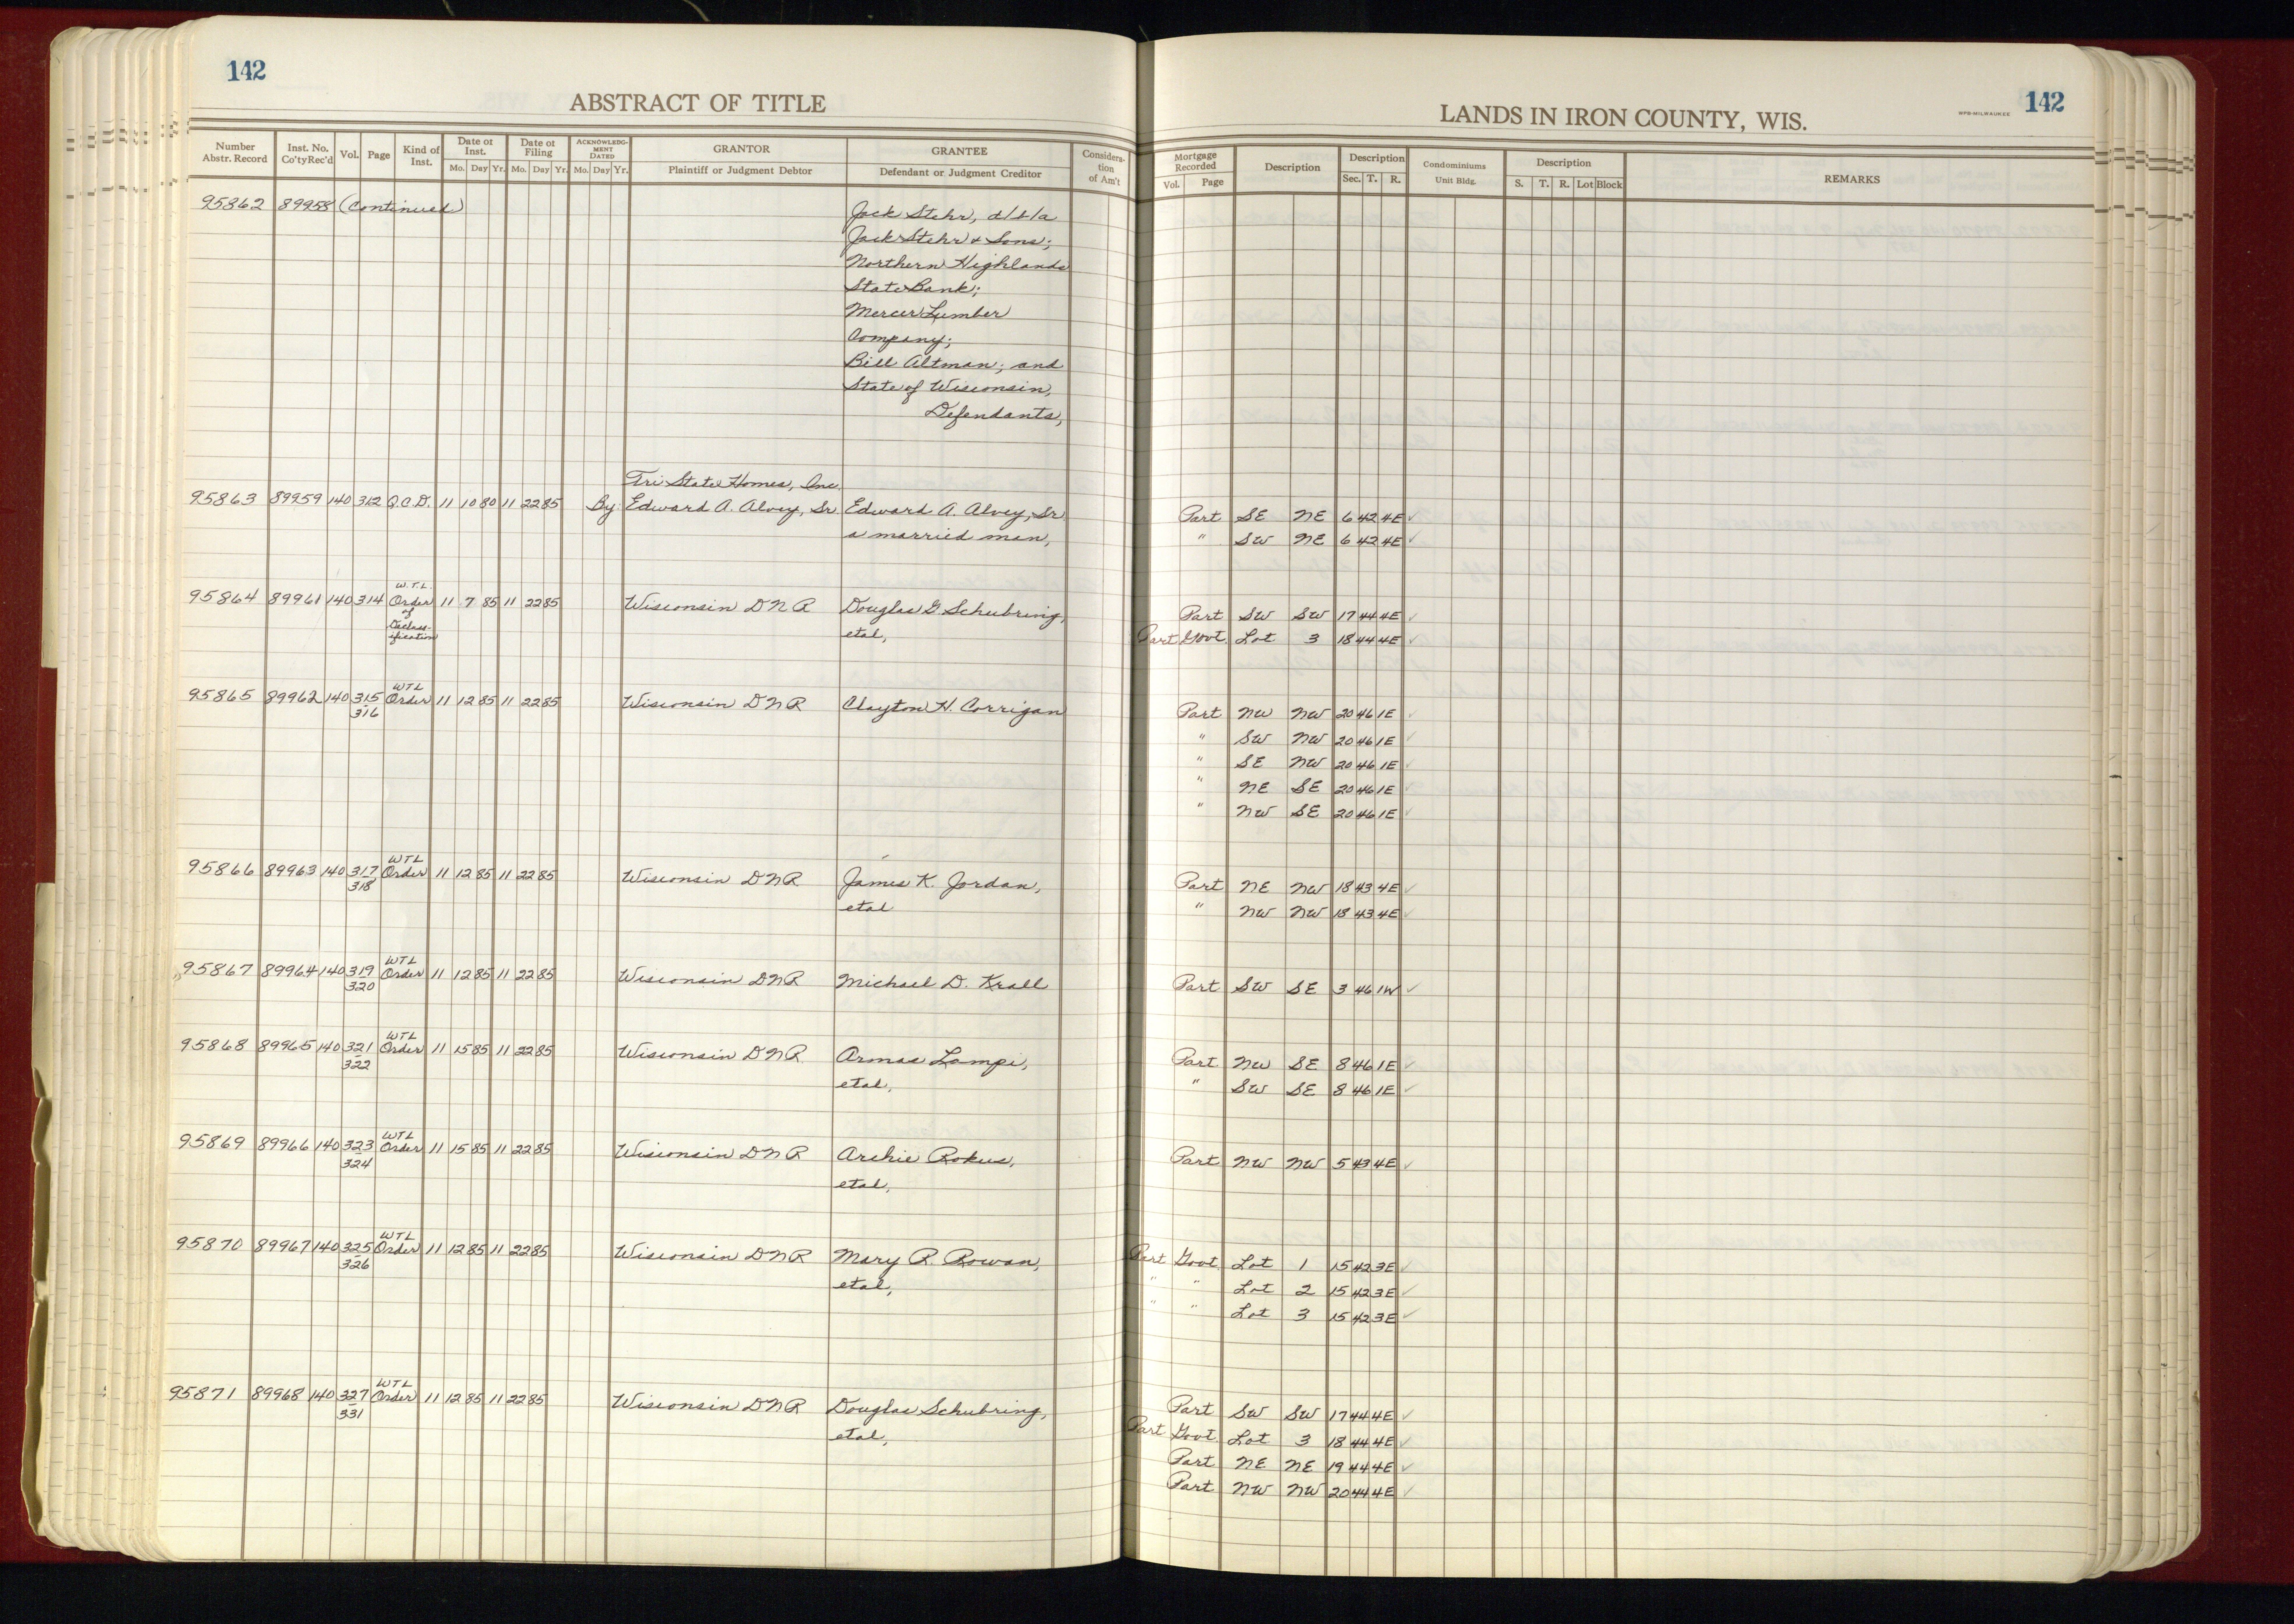 142
142
ABSTRACT OF TITLE
LANDS IN IRON COUNTY, WIS.
WPB-MILWAUKEE
Number Abstr. Record Inst. No. Co'ty Rec'd Vol. Page Kind of Inst. Date of Inst. Mo. Day Yr. Date of Filing Mo. Day Yr. ACKNOWLEDG-MENT DATED Mo. Day Yr. GRANTOR Plaintiff or Judgment Debtor GRANTEE Defendant or Judgment Creditor Consideration of Am't Mortgage Recorded Vol. Page Description Description Sec. T. R. Condominiums Unit Bldg. Description S. T. R. Lot Block REMARKS
95862 89958 (Continued) Jack Stehr, d/b/a
Jack Stehr & Sons;
Northern Highlands
State Bank;
Mercer Lumber
Company;
Bill Altman; and
State of Wisconsin,
Defendants,
Tri State Homes, Inc.
95863 89959 140 312 Q.C.D. 11 10 80 11 22 85 By: Edward A. Alvey, Sr. Edward A. Alvey, Sr. Part SE NE 6 42 4E ✓
a married man, " SW NE 6 42 4E ✓
W.T.L.
95864 89961 140 314 Order 11 7 85 11 22 85 Wisconsin DNR Douglas G Schubring, Part SW SW 17 44 4E ✓
of
Declass-
ification etal, Part Govt. Lot 3 18 44 4E ✓
WTL
95865 89962 140 315 Order 11 12 85 11 22 85 Wisconsin DNR Clayton H. Corrigan Part NW NW 20 46 1E ✓
316
" SW NW 20 46 1E ✓
" SE NW 20 46 1E ✓
" NE SE 20 46 1E ✓
" NW SE 20 46 1E ✓
WTL
95866 89963 140 317 Order 11 12 85 11 22 85 Wisconsin DNR James K. Jordan, Part NE NW 18 43 4E ✓
318 etal " NW NW 18 43 4E ✓
WTL
95867 89964 140 319 Order 11 12 85 11 22 85 Wisconsin DNR Michael D. Krall Part SW SE 3 46 1W ✓
320
WTL
95868 89965 140 321 Order 11 15 85 11 22 85 Wisconsin DNR Armas Lampi, Part NW SE 8 46 1E ✓
322 etal, " SW SE 8 46 1E ✓
WTL
95869 89966 140 323 Order 11 15 85 11 22 85 Wisconsin DNR Archie Rokus, Part NW NW 5 43 4E ✓
324 etal,
WTL
95870 89967 140 325 Order 11 12 85 11 22 85 Wisconsin DNR Mary R. Rowan, Part Govt. Lot 1 15 42 3E ✓
326 etal, " " Lot 2 15 42 3E ✓
" " Lot 3 15 42 3E ✓
WTL
95871 89968 140 327 Order 11 12 85 11 22 85 Wisconsin DNR Douglas Schubring, Part SW SW 17 44 4E ✓
331 etal, Part Govt. Lot 3 18 44 4E ✓
Part NE NE 19 44 4E ✓
Part NW NW 20 44 4E ✓